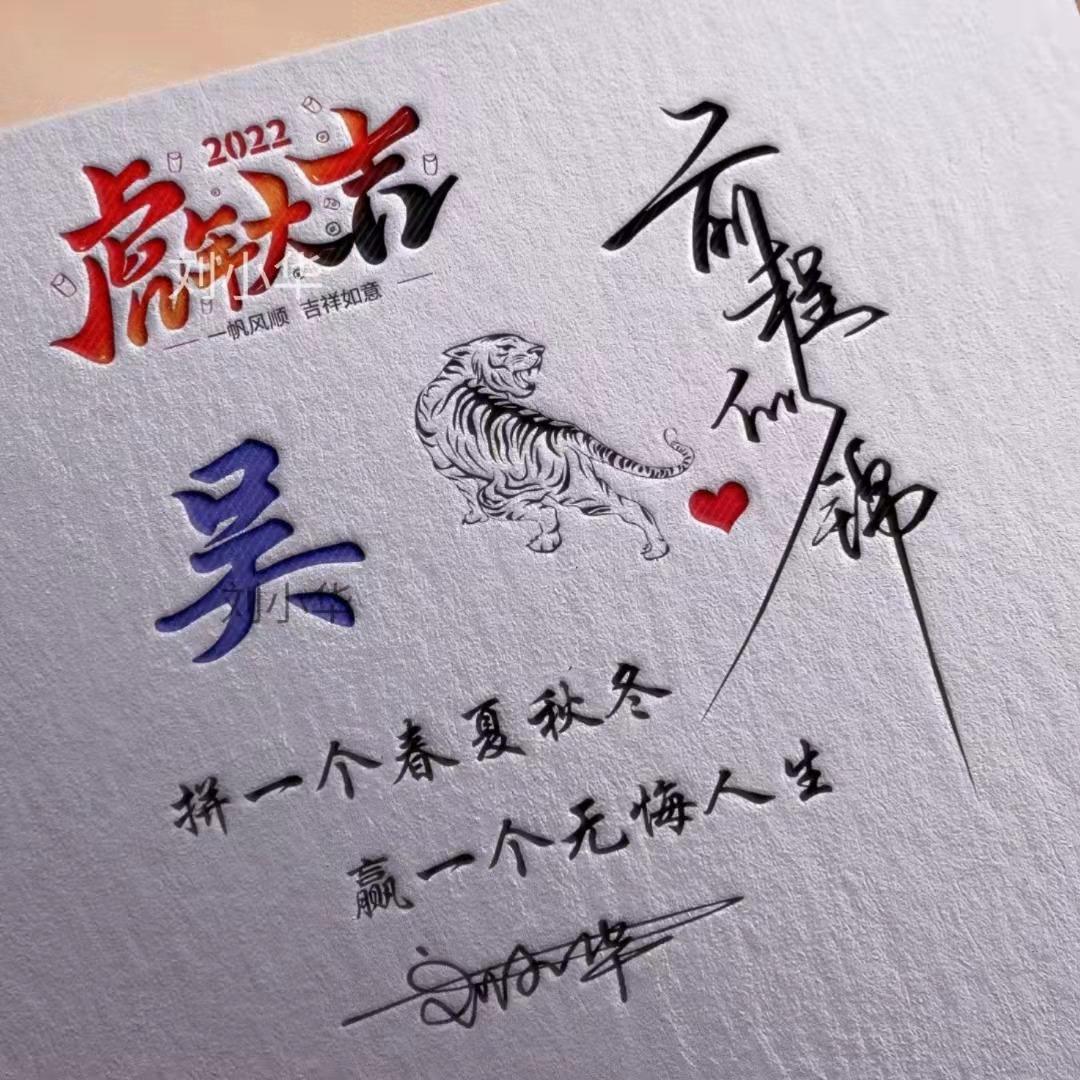 2022
虎年大吉
刘小华
一帆风顺 吉祥如意
前程似锦
吴
刘小华
拼一个春夏秋冬
赢一个无悔人生
刘小华